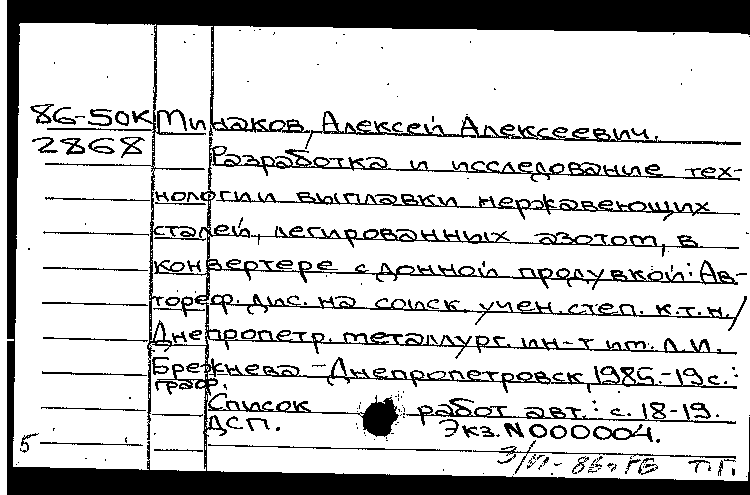 86-50К Минаков, Алексей Алексеевич.
2868 Разработка и исследование тех-
нологии выплавки нержавеющих
сталей, легированных азотом, в
конвертере с донной продувкой: Ав-
тореф. дис. на соиск. учен. степ. к.т.н./
Днепропетр. металлург. ин-т им. Л.И.
Брежнева. - Днепропетровск, 1985.-19 с.:
граф.
Список работ авт.: с. 18-19.
ДСП. Экз. N000004.
5
Т.П.